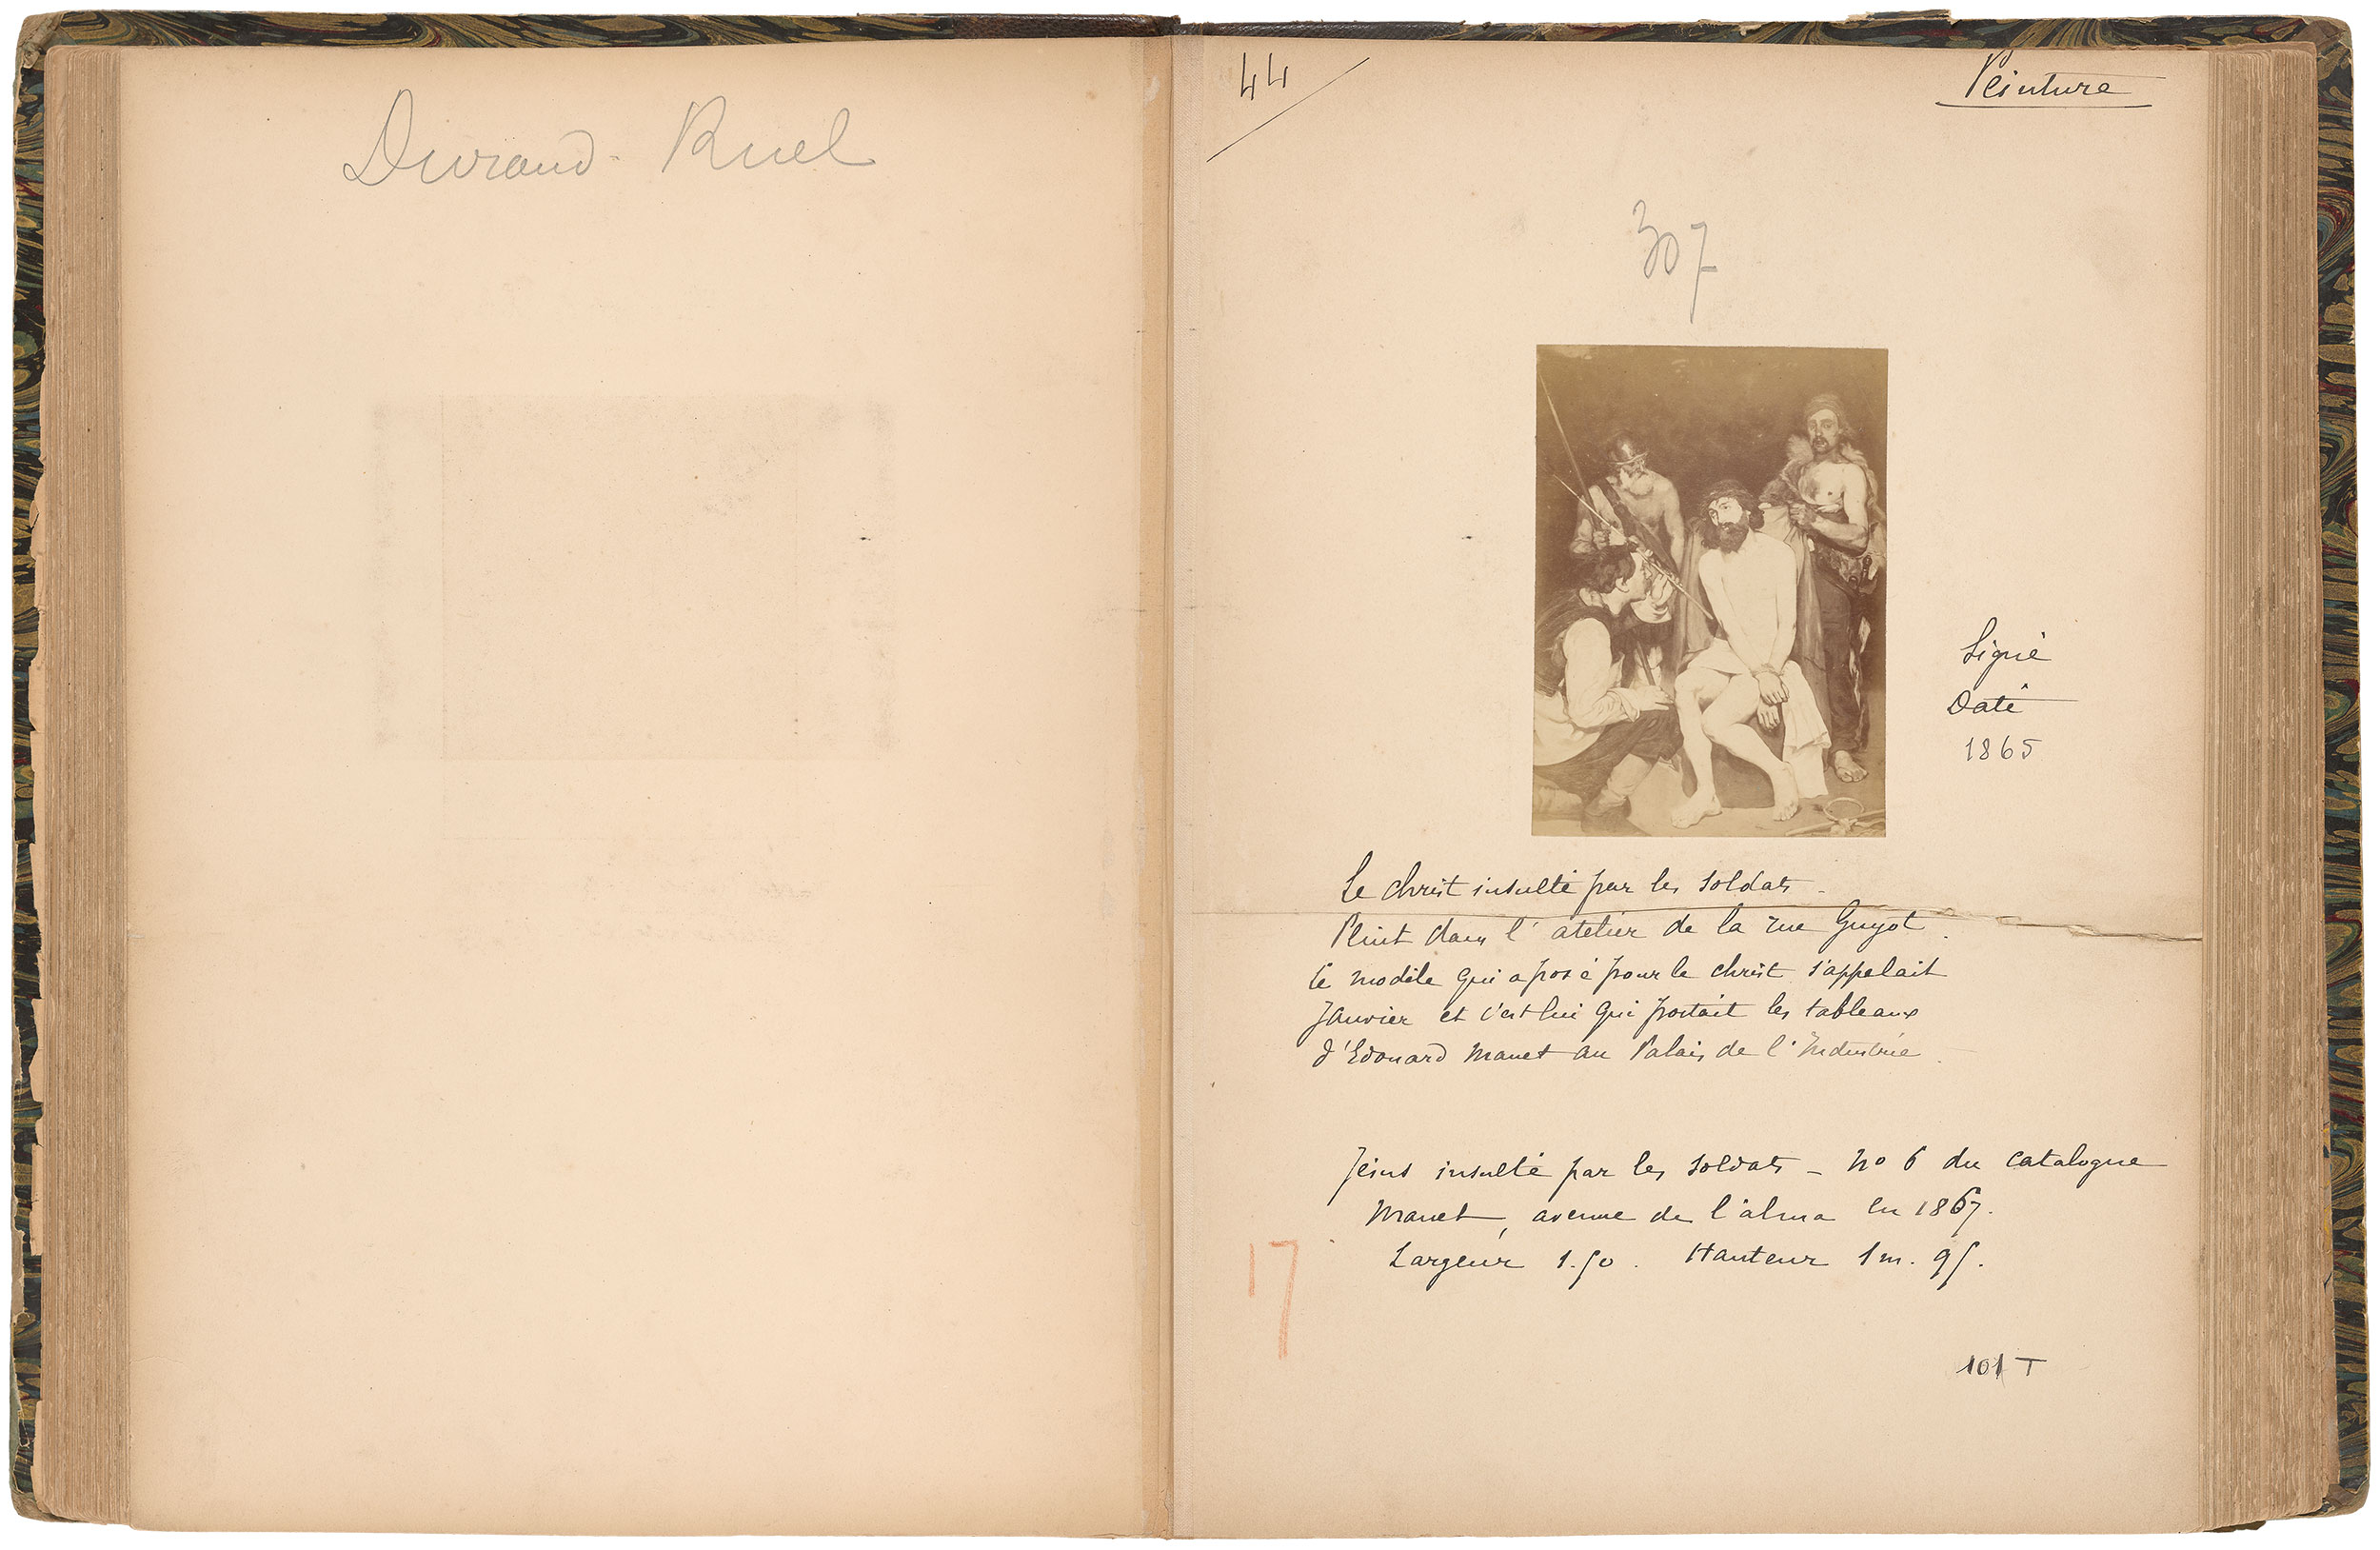 Durand-Ruel
44
Peinture
307
Signé
Daté
1865
Le christ insulté par les soldats -
Peint dans l'atelier de la rue Guyot.
Le modèle qui a posé pour le christ s'appelait
Janvier et c'est lui qui portait les tableaux
d'Edouard Manet au Palais de l'Industrie.
Jésus insulté par les soldats - No 6 du catalogue
Manet, avenue de l'alma en 1867.
17
Largeur 1.50. Hauteur 1m. 95.
101 T